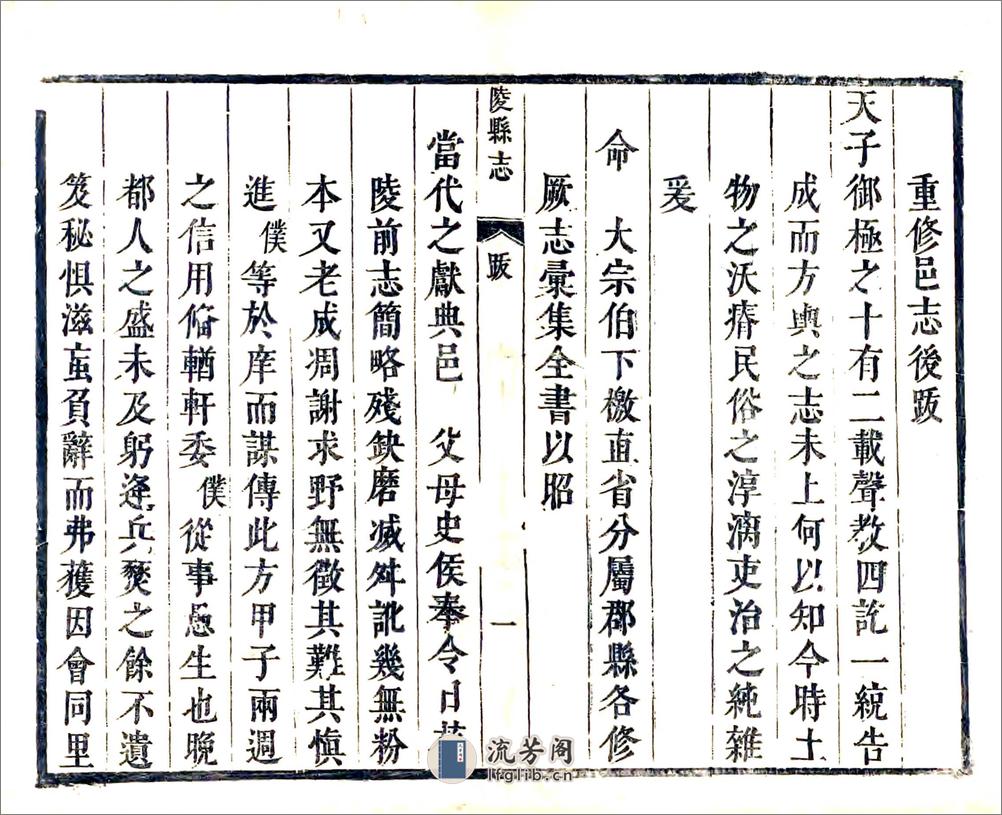 重修邑志後跋
天子御極之十有二載聲教四訖一統告
成而方輿之志未上何以知今時土
物之沃瘠民俗之淳漓吏治之純雜
爰
命　大宗伯下檄直省分屬郡縣各修
厥志彙集全書以昭
陵縣志　跋　一
當代之獻典邑　父母史侯奉令曰
陵前志簡略殘缺磨滅舛訛幾無粉
本又老成凋謝求野無徵其難其慎
進僕等於庠而謀傳此方甲子兩週
之信用俻輶軒委僕從事愚生也晚
都人之盛未及躬逢兵燹之餘不遺
笈秘惧滋䖟負辭而弗獲因會同里
流芳阁
lfglib.cn